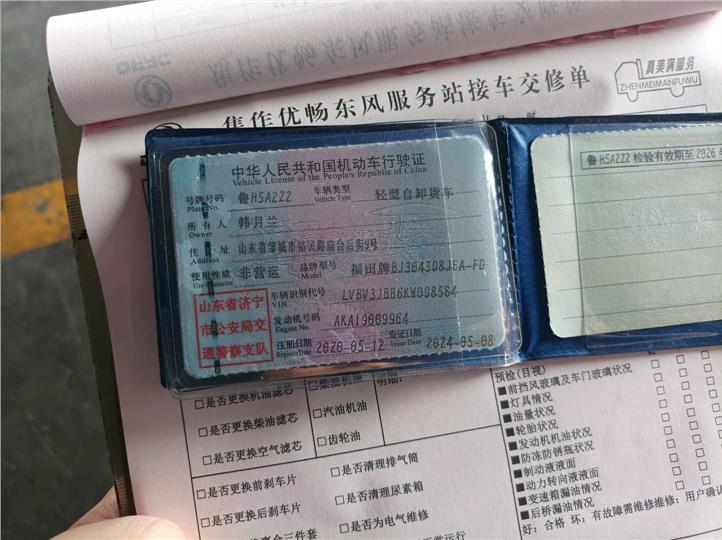 DFAC
焦作优畅东风服务站接车交修单
真美满服务
ZHENMEIMANFUWU
中华人民共和国机动车行驶证
Vehicle License of the People's Republic of China
号牌号码 鲁H5A222 车辆类型 轻型自卸货车
Plate No. Vehicle Type
所有人 韩月兰
Owner
住址 山东省邹城市裕民路庙台后街9号
Address
使用性质 非营运 品牌型号 福田牌BJ3043D8JEA-FD
Use Character Model
山东省济宁
市公安局交
通警察支队
车辆识别代号 LVBV3JBB6KW098584
VIN
发动机号码 AKA19009964
Engine No.
注册日期 2020-05-12 发证日期 2024-05-08
Register Date Issue Date
鲁H5A222 检验有效期至2026年
□是否更换机油滤芯
□是否更换柴油滤芯
□是否更换空气滤芯
□柴油机油
□汽油机油
□齿轮油
明细:
□是否更换前刹车片
□是否更换后刹车片
□是否清理排气筒
□是否清理尿素箱
□是否为电气维修
预检(目视)
■前挡风玻璃及车门玻璃状况
■灯具情况
■油量状况
■轮胎状况
■发动机机油状况
■防冻防锈瓶状况
■制动液液面
■动力转向液液面
■变速箱漏油情况
■后桥漏油情况
好:合格 坏:有故障需维修维修:用户确认